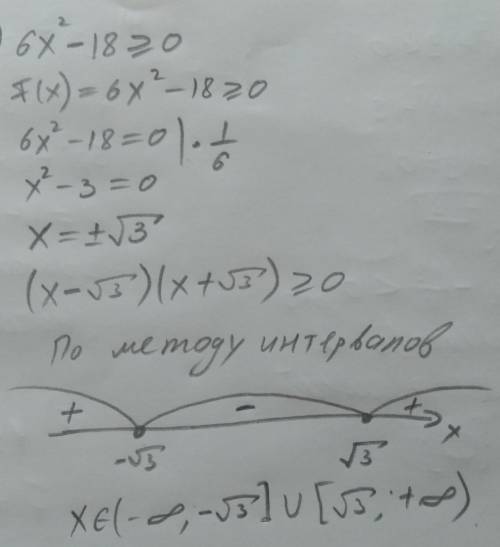 6x² - 18 ⩾ 0
F(x) = 6x² - 18 ⩾ 0
6x² - 18 = 0 | · 1/6
x² - 3 = 0
x = ±√3
(x - √3)(x + √3) ⩾ 0
По методу интервалов
+ - + x
-√3 √3
x ∈ (-∞, -√3] ∪ [√3; +∞)